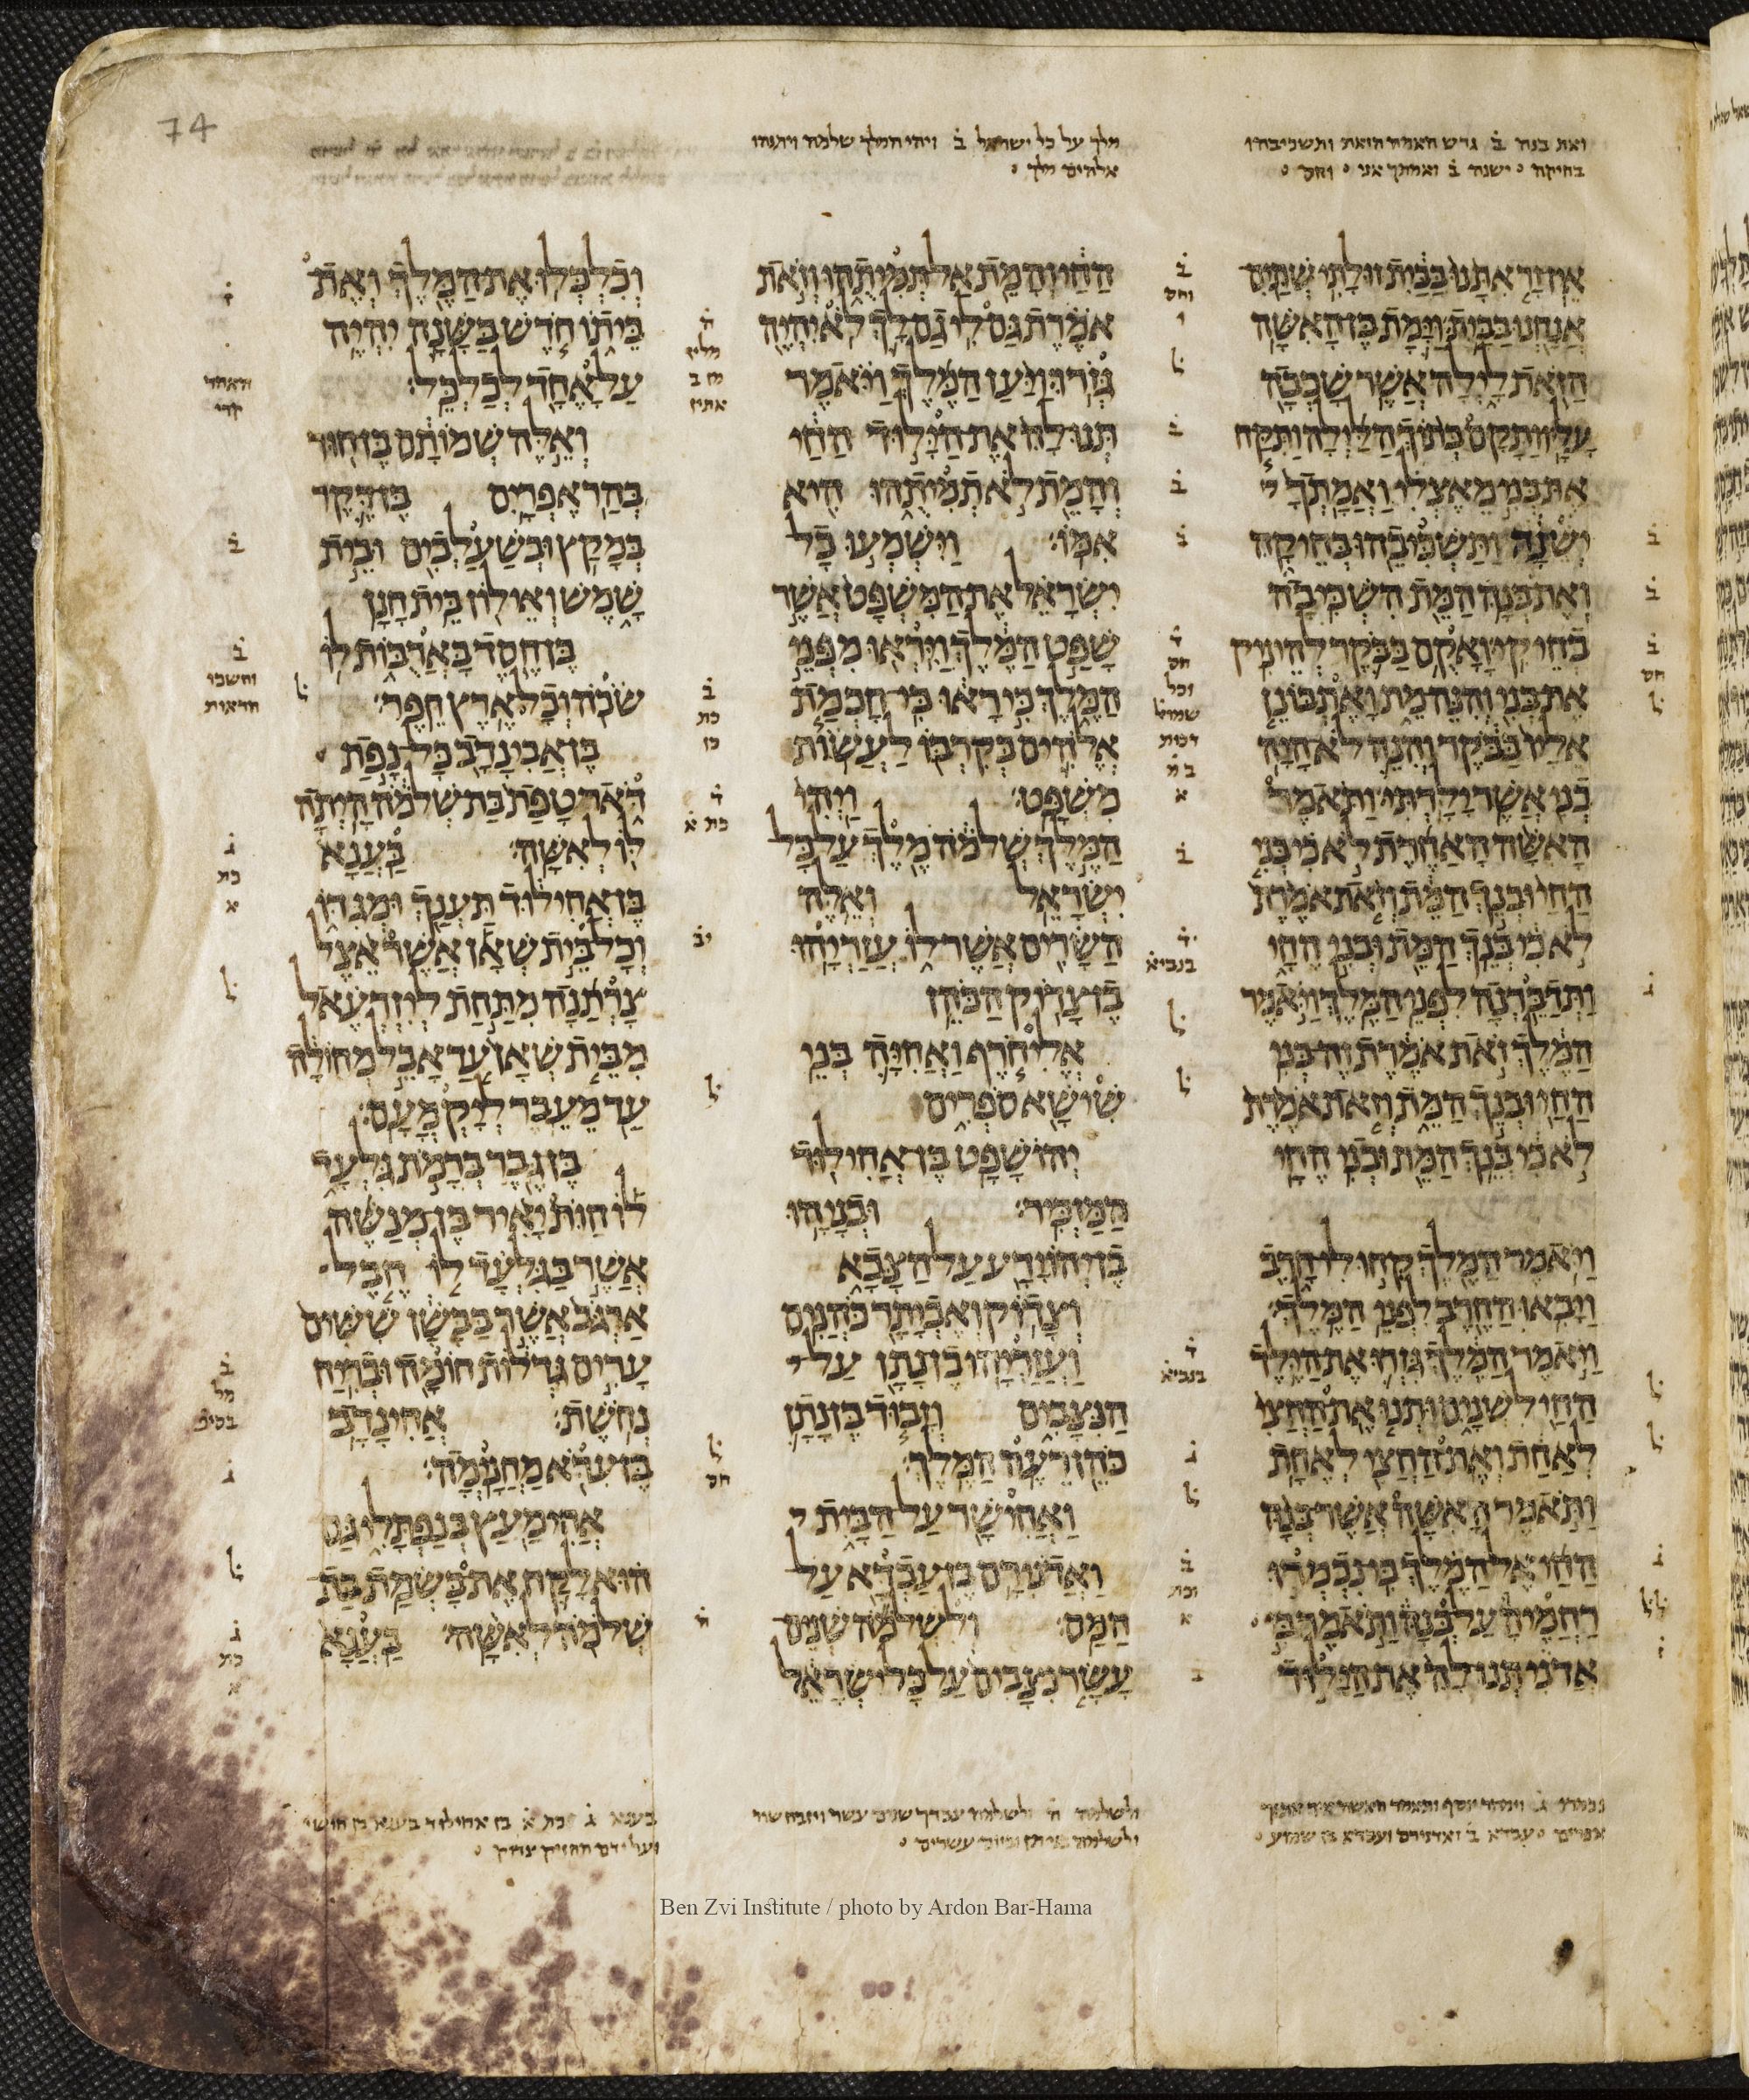 74
ואת בנה ב גרש האמה הזאת ותשכיבהו
בחיקה ∘ ישנה ב ואמתך אני ∘ וחס ∘
מלך על כל ישראל ב ויהי המלך שלמה ויתנהו
אלהים מלך ∘
אין זר אתנו בבית זולתי שתים
אנחנו בבית וימת בן האשה
הזאת לילה אשר שכבה
עליו ותקם בתוך הלילה ותקח
את בני מאצלי ואמתך
ישנה ותשכיבהו בחיקה
ואת בנה המת השכיבה
בחיקי ואקם בבקר להיניק
את בני והנה מת ואתבונן
אליו בבקר והנה לא היה
בני אשר ילדתי ותאמר
האשה האחרת לא כי בני
החי ובנך המת וזאת אמרת
לא כי בנך המת ובני החי
ותדברנה לפני המלך ויאמר
המלך זאת אמרת זה בני
החי ובנך המת וזאת אמרת
לא כי בנך המת ובני החי
ויאמר המלך קחו לי חרב
ויבאו החרב לפני המלך׃
ויאמר המלך גזרו את הילד
החי לשנים ותנו את החצי
לאחת ואת החצי לאחת
ותאמר האשה אשר בנה
החי אל המלך כי נכמרו
רחמיה על בנה ותאמר בי
אדני תנו לה את הילוד
החי והמת אל תמיתהו וזאת
אמרת גם לי גם לך לא יהיה
גזרו ויען המלך ויאמר
תנו לה את הילוד החי
והמת לא תמיתהו היא
אמו׃ וישמעו כל
ישראל את המשפט אשר
שפט המלך ויראו מפני
המלך כי ראו כי חכמת
אלהים בקרבו לעשות
משפט׃ ויהי
המלך שלמה מלך על כל
ישראל ואלה
השרים אשר לו עזריהו
בן צדוק הכהן
אליחרף ואחיה בני
שישא ספרים
יהושפט בן אחילוד
המזכיר׃ ובניהו
בן יהוידע על הצבא
וצדוק ואביתר כהנים
ועזריהו בן נתן על
הנצבים וזבוד בן נתן
כהן רעה המלך׃
ואחישר על הבית
ואדנירם בן עבדא על
המס׃ ולשלמה שנים
עשר נצבים על כל ישראל
וכלכלו את המלך ואת
ביתו חדש בשנה יהיה
על אחד לכלכל׃
ואלה שמותם בן חור
בהר אפרים בן דקר
במקץ ובשעלבים ובית
שמש ואילון בית חנן
בן חסד בארבות לו
שכה וכל ארץ חפר׃
בן אבינדב כל נפת
דאר טפת בת שלמה היתה
לו לאשה׃ בענא
בן אחילוד תענך ומגדו
וכל בית שאן אשר אצל
צרתנה מתחת ליזרעאל
מבית שאן עד אבל מחולה
עד מעבר ליקמעם׃
בן גבר ברמת גלעד
לו חות יאיר בן מנשה
אשר בגלעד לו חבל
ארגב אשר בבשן ששים
ערים גדלות חומה ובריח
נחשת׃ אחינדב
בן עדא מחנימה׃
אחימעץ בנפתלי גם
הוא לקח את בשמת בת
שלמה לאשה׃ בענא
נכמרו ג וימהר יוסף ותאמר האשה
אפרים ∘ עבדא ב ואדנירם ועבדא בן שמוע ∘
ולשלמה ה ולשלמה שנים עשר ויזבח שור
ולשלמה עשרים ∘
בענא ג כת א בן אחילוד בענא בן חושי
ועל ידם החזיק צדוק ∘
Ben Zvi Institute / photo by Ardon Bar-Hama